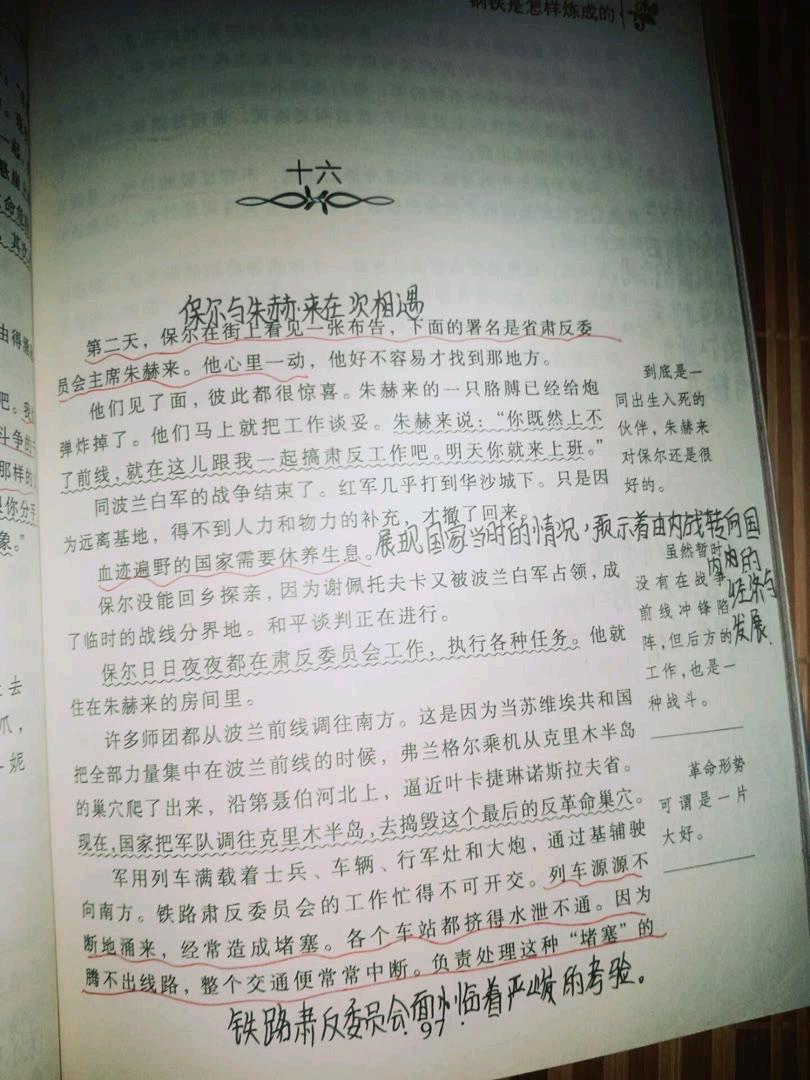 钢铁是怎样炼成的
十六
保尔与朱赫来在次相遇
第二天，保尔在街上看见一张布告，下面的署名是省肃反委
员会主席朱赫来。他心里一动，他好不容易才找到那地方。
他们见了面，彼此都很惊喜。朱赫来的一只胳膊已经给炮
弹炸掉了。他们马上就把工作谈妥。朱赫来说：“你既然上不
了前线，就在这儿跟我一起搞肃反工作吧。明天你就来上班。”
同波兰白军的战争结束了。红军几乎打到华沙城下。只是因
为远离基地，得不到人力和物力的补充，才撤了回来。
血迹遍野的国家需要休养生息。
展现国家当时的情况，预示着由内战转向国
内的
经济与
发展.
保尔没能回乡探亲，因为谢佩托夫卡又被波兰白军占领，成
了临时的战线分界地。和平谈判正在进行。
保尔日日夜夜都在肃反委员会工作，执行各种任务。他就
住在朱赫来的房间里。
许多师团都从波兰前线调往南方。这是因为当苏维埃共和国
把全部力量集中在波兰前线的时候，弗兰格尔乘机从克里木半岛
的巢穴爬了出来，沿第聂伯河北上，逼近叶卡捷琳诺斯拉夫省。
现在，国家把军队调往克里木半岛，去捣毁这个最后的反革命巢穴。
军用列车满载着士兵、车辆、行军灶和大炮，通过基辅驶
向南方。铁路肃反委员会的工作忙得不可开交。列车源源不
断地涌来，经常造成堵塞。各个车站都挤得水泄不通。因为
腾不出线路，整个交通便常常中断。负责处理这种“堵塞”的
铁路肃反委员会面临着严峻的考验。
97
到底是一
同出生入死的
伙伴，朱赫来
对保尔还是很
好的。
虽然暂时
没有在战争
前线冲锋陷
阵，但后方的
工作，也是一
种战斗。
革命形势
可谓是一片
大好。
由得
吧。我
斗争的
那样的
很你分手
象。”
去
爪，
妮